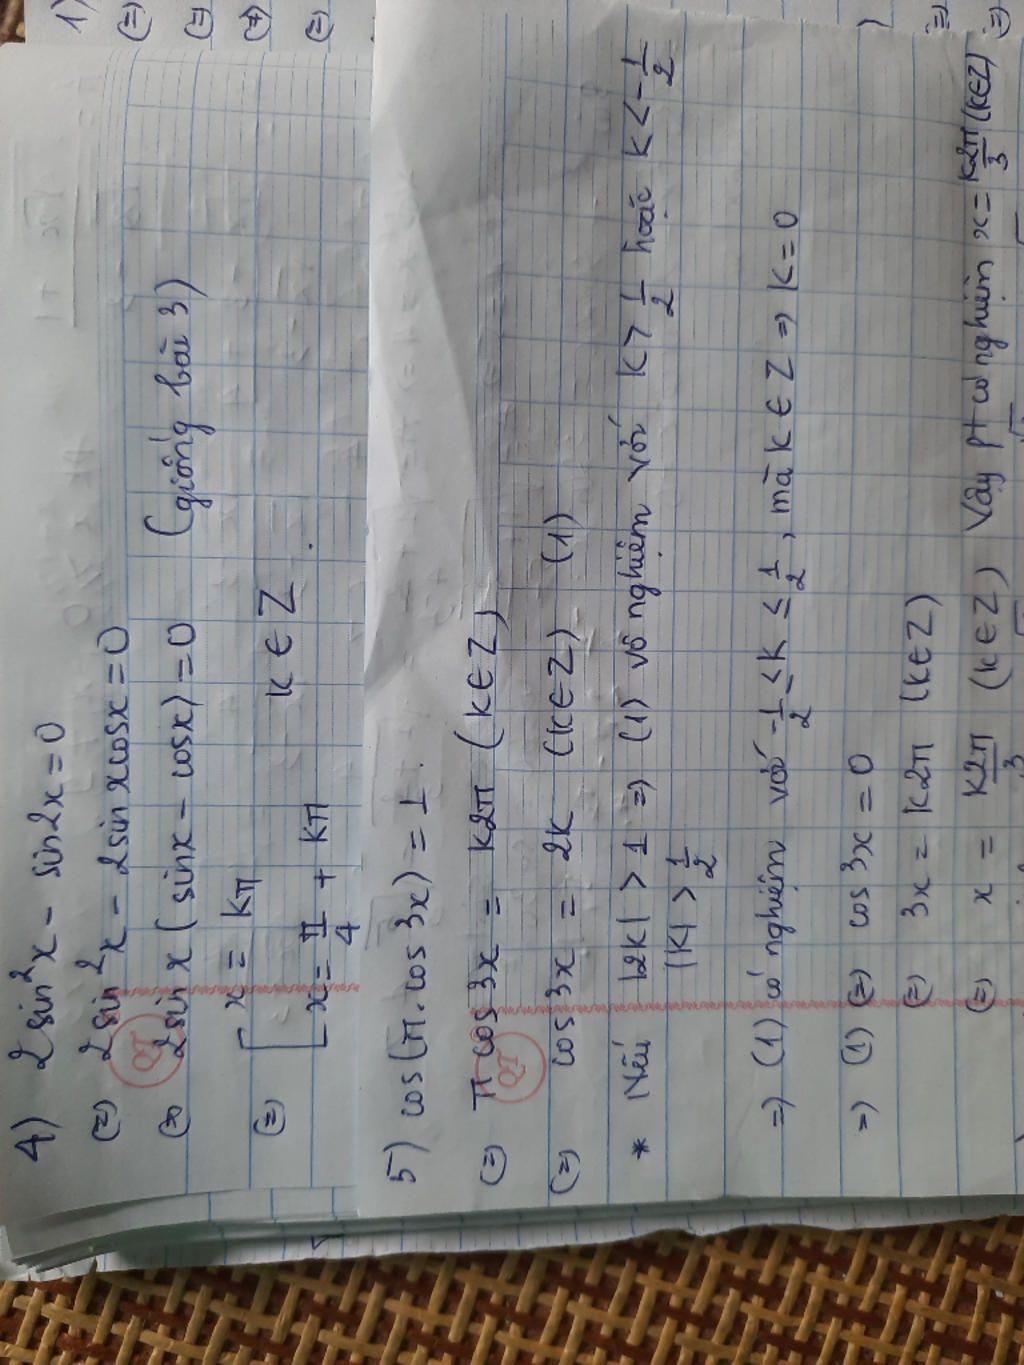 1)
(=)
(=)
(=)
(=)
4) 2sin²x - sin2x = 0
(=) 2sin²x - 2sinxcosx = 0
(=) 2sinx(sinx - cosx) = 0 (giống bài 3)
(=) [ x = kπ
[ x = π/4 + kπ k ∈ Z
5) cos(π.cos3x) = 1.
(=) π cos3x = k2π (k ∈ Z)
(=) cos3x = 2k (k ∈ Z) (1)
* Nếu |2k| > 1 => (1) vô nghiệm với k > 1/2 hoặc k < -1/2
|k| > 1/2
=) (1) có nghiệm với -1/2 ≤ k ≤ 1/2, mà k ∈ Z => k = 0
=) (1) (=) cos3x = 0
(=) 3x = k2π (k ∈ Z)
(=) x = k2π/3 (k ∈ Z) Vậy pt có nghiệm x = k2π/3 (k ∈ Z)